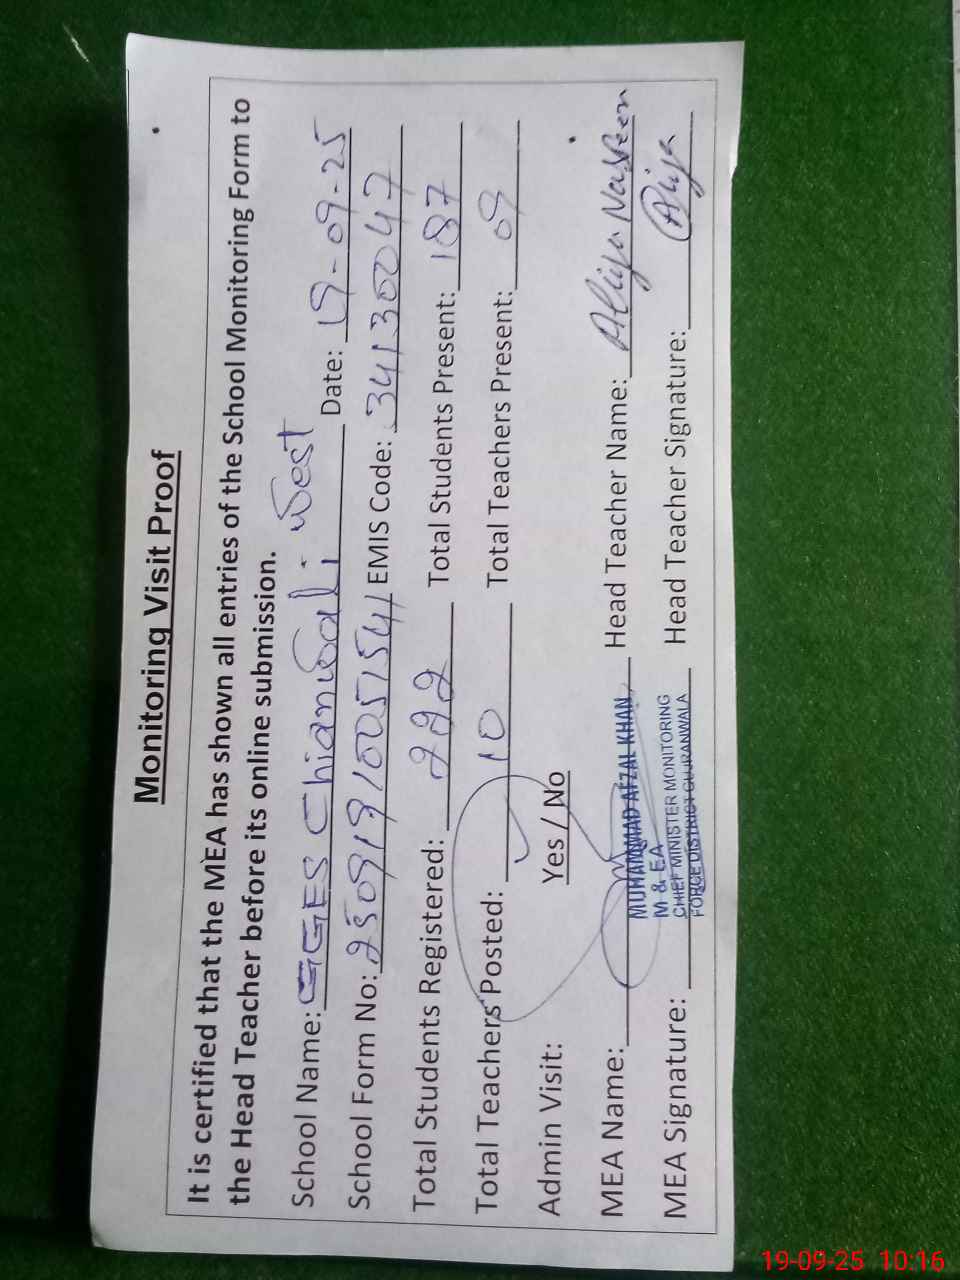 Monitoring Visit Proof
It is certified that the MEA has shown all entries of the School Monitoring Form to
the Head Teacher before its online submission.
School Name: GGES Chianwali West Date: 19-09-25
School Form No: EMIS Code: 34130047
Total Students Registered: 222 Total Students Present: 187
Total Teachers Posted: 10 Total Teachers Present: 09
Admin Visit: Yes / No
MEA Name: MUHAMMAD AFZAL KHAN Head Teacher Name: Aliya Nasreen
M & EA
MEA Signature: CHIEF MINISTER MONITORING Head Teacher Signature: Aliya
FORCE DISTRICT GUJRANWALA
19-09-25 10:16